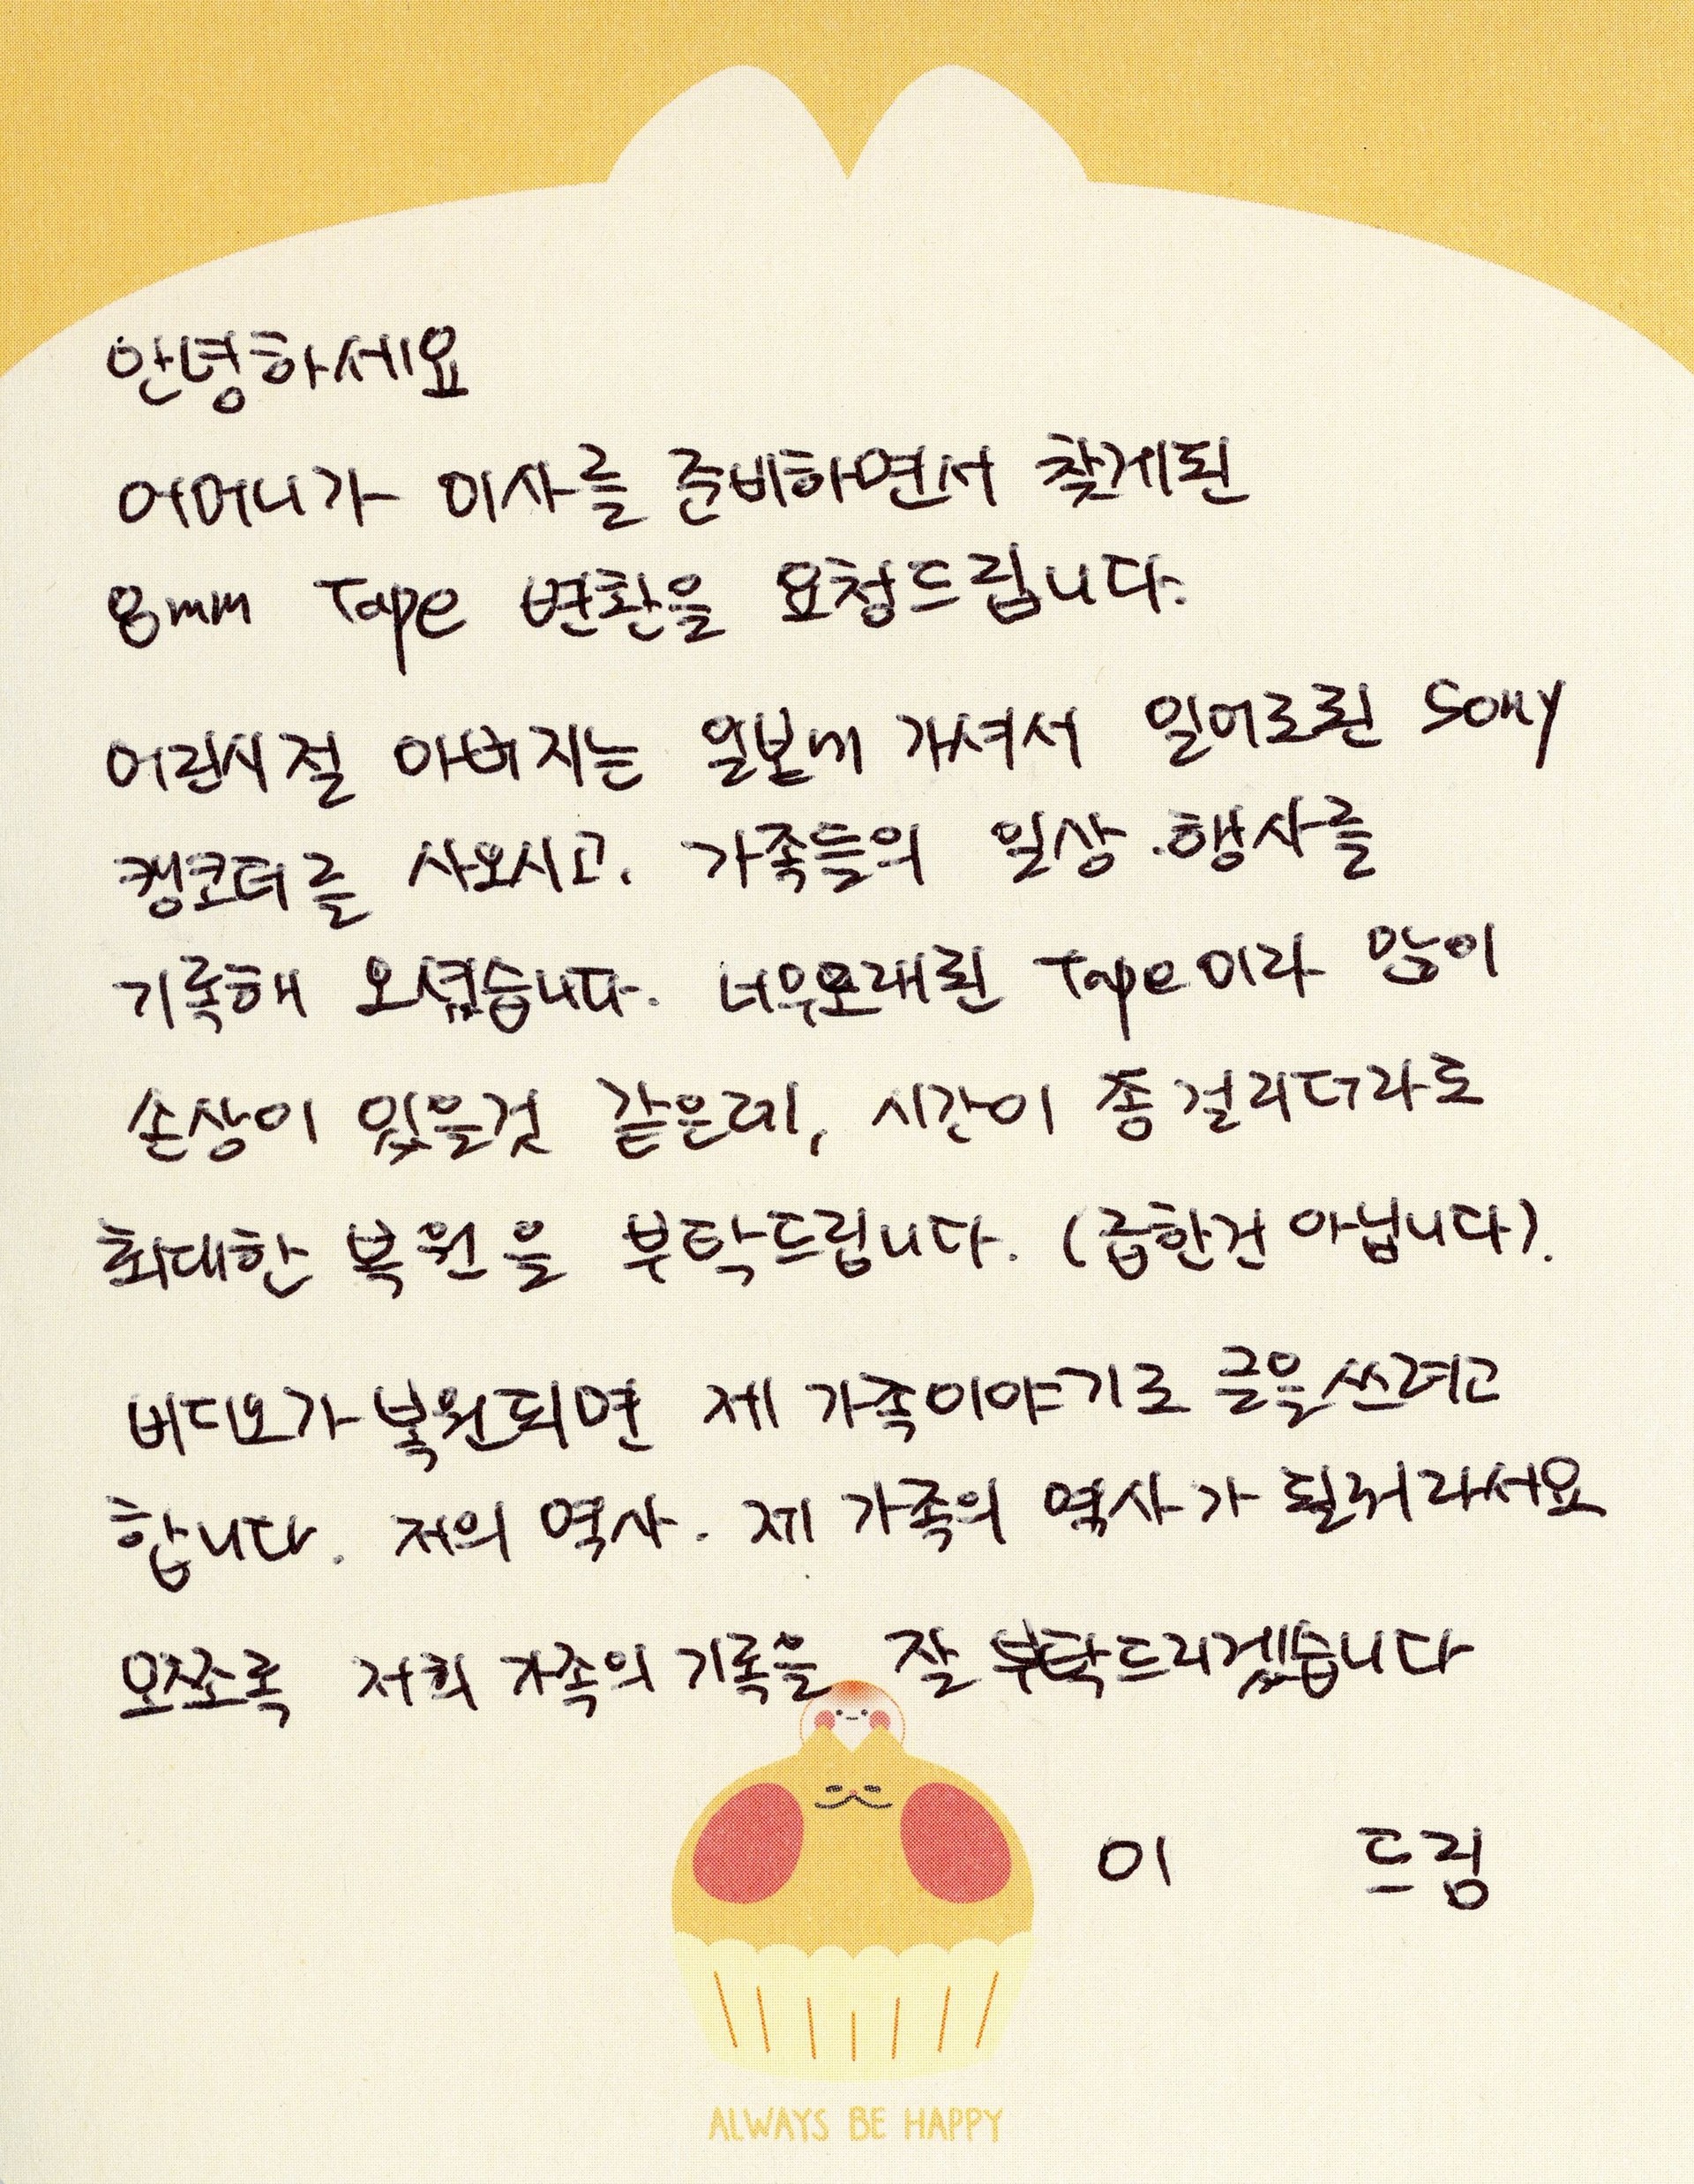 안녕하세요
어머니가 이사를 준비하면서 찾게된
8mm Tape 변환을 요청드립니다.
어린시절 아버지는 일본에 가셔서 일어로된 SONY
캠코더를 사오시고. 가족들의 일상.행사를
기록해 오셨습니다. 너무오래된 Tape이라 많이
손상이 있을것 같은데, 시간이 좀 걸리더라도
최대한 복원을 부탁드립니다. (급한건 아닙니다).
비디오가 복원되면 제 가족이야기로 글을쓰려고
합니다. 저의 역사. 제 가족의 역사가 될거라서요
모쪼록 저희 가족의 기록을 잘 부탁드리겠습니다
이 드림
ALWAYS BE HAPPY